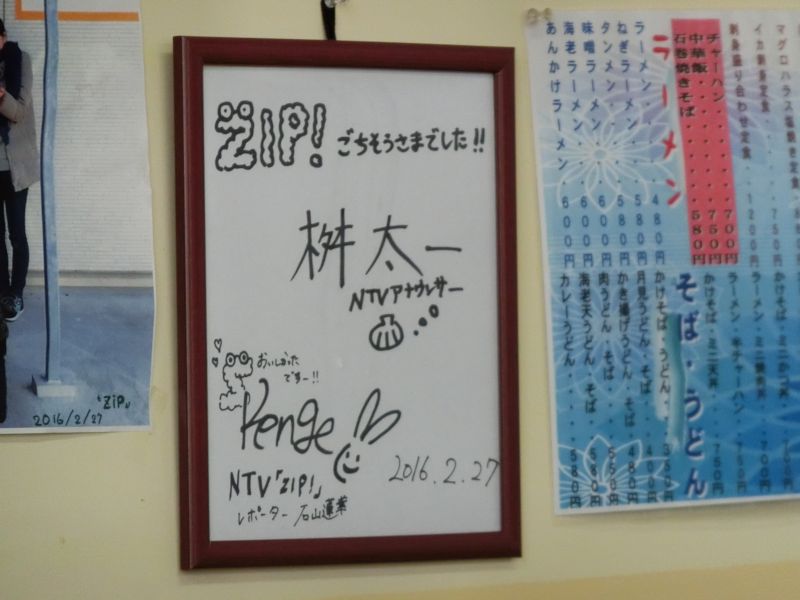 「ZIP」
2016/2/27
ZIP! ごちそうさまでした!!
桝太一
NTVアナウンサー
おいしかった
ですー!!
Renge
NTV「ZIP!」
レポーター 石山蓮華
2016.2.27
マグロハラス塩焼き定食
イカ刺身定食・・750円
刺身盛り合わせ定食・・1200円
チャーハン・・・・・・700円
中華飯・・・・・・・750円
石巻焼きそば・・・・580円
ラーメン
ラーメン・・・・・・480円
ねぎラーメン・・・・580円
タンメン・・・・・・580円
味噌ラーメン・・・・600円
海老ラーメン・・・・600円
あんかけラーメン・・600円
かけそば・ミニカツ丼
ラーメン・ミニ焼肉丼・・700円
ラーメン・半チャーハン・750円
かけそば・ミニ天丼・・750円
そば・うどん
かけそば・うどん・・350円
月見うどん・そば・・400円
かき揚げうどん・そば・480円
肉うどん・そば・・・550円
海老天うどん・そば・580円
カレーうどん・・・・580円